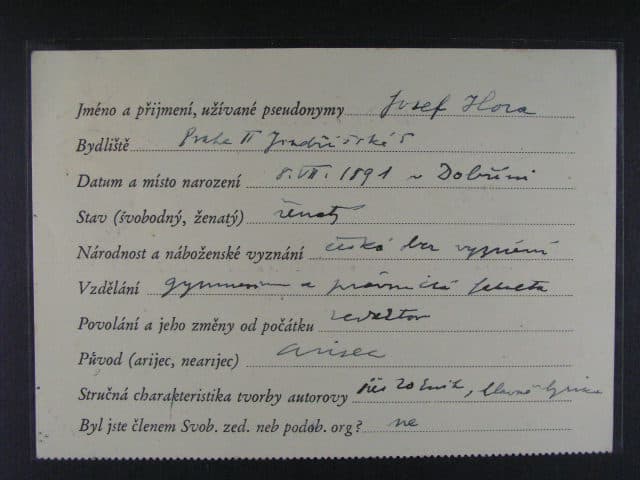 Jméno a přijmení, užívané pseudonymy Josef Hora
Bydliště Praha II Jindřišská 5
Datum a místo narození 8. VII. 1891 v Dobříni
Stav (švobodný, ženatý) ženatý
Národnost a náboženské vyznání česká bez vyznání
Vzdělání gymnasium a právnická fakulta
Povolání a jeho změny od počátku redaktor
Původ (arijec, nearijec) arijec
Stručná charakteristika tvorby autorovy přes 20 knih, hlavně lyrika
Byl jste členem Svob. zed. neb podob. org? ne